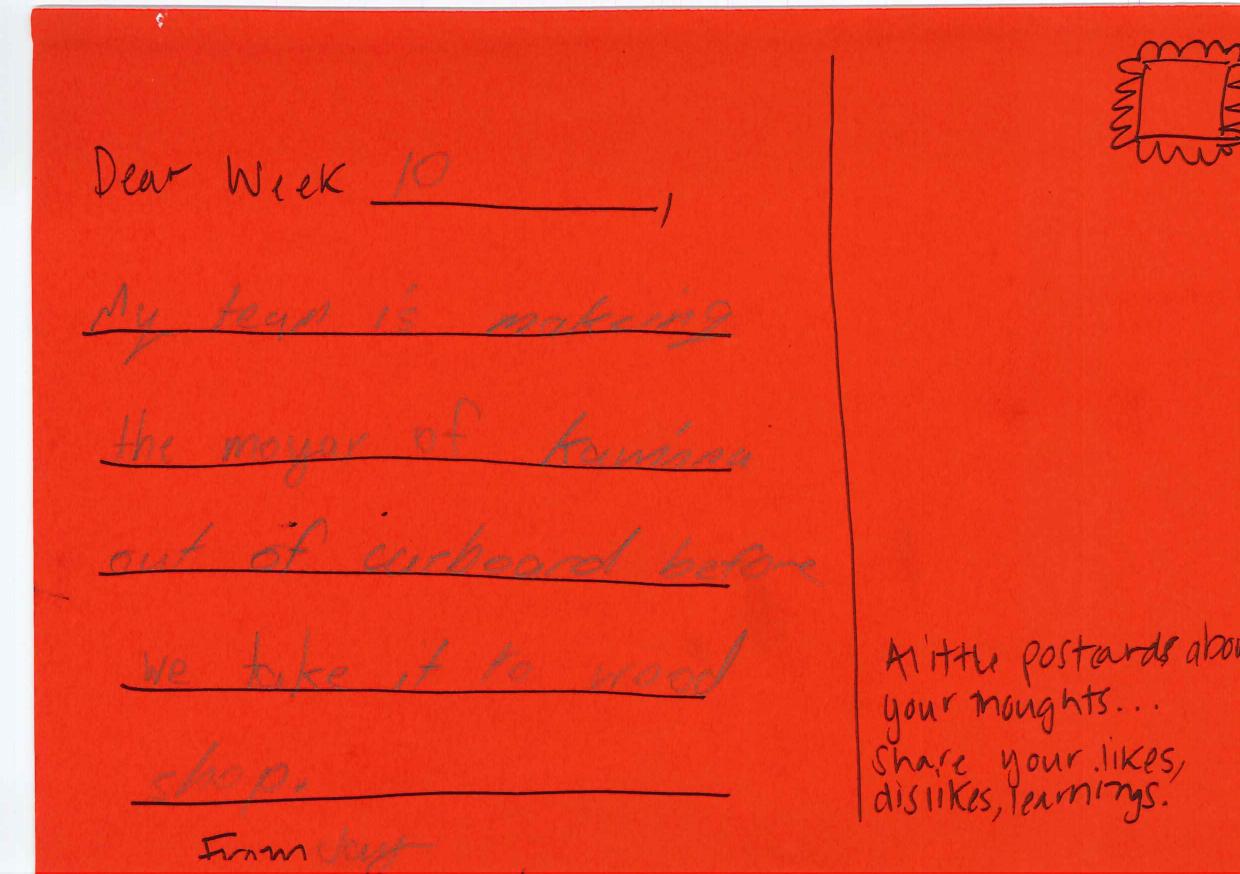 Dear Week 10,
My team is makeing
the mayor of
out of curboard before
we take it to wood
shop.
From
A little postcards abou
your thoughts...
share your likes,
dislikes, learnings.